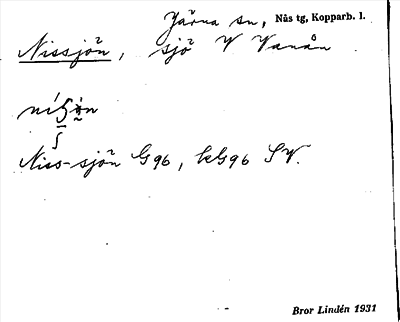 Järna sn, Nås tg, Kopparb. l.
Nissjön, sjö V Vanån
Niss-sjön G96, kG96 SV.
Bror Lindén 1931